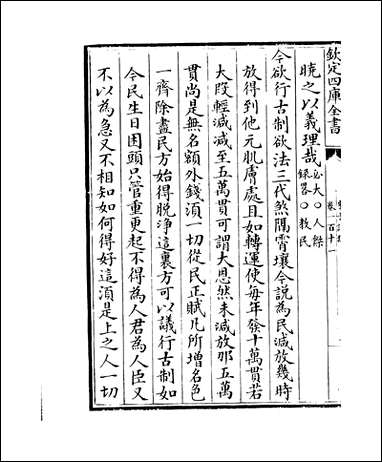 欽定四庫全書
卷一百十一
曉之以義理哉必大〇人傑
錄畧〇教民
今欲行古制欲法三代煞隔霄壤今說為民減放幾時
放得到他元肌膚處且如轉運使每年發十萬貫若
大段輕減減至五萬貫可謂大恩然未減放那五萬
貫尚是無名額外錢須一切從民正賦凡所增名色
一齊除盡民方始得脫淨這裏方可以議行古制如
今民生日困頭只管重更起不得為人君為人臣又
不以為急又不相知如何得好這須是上之人一切